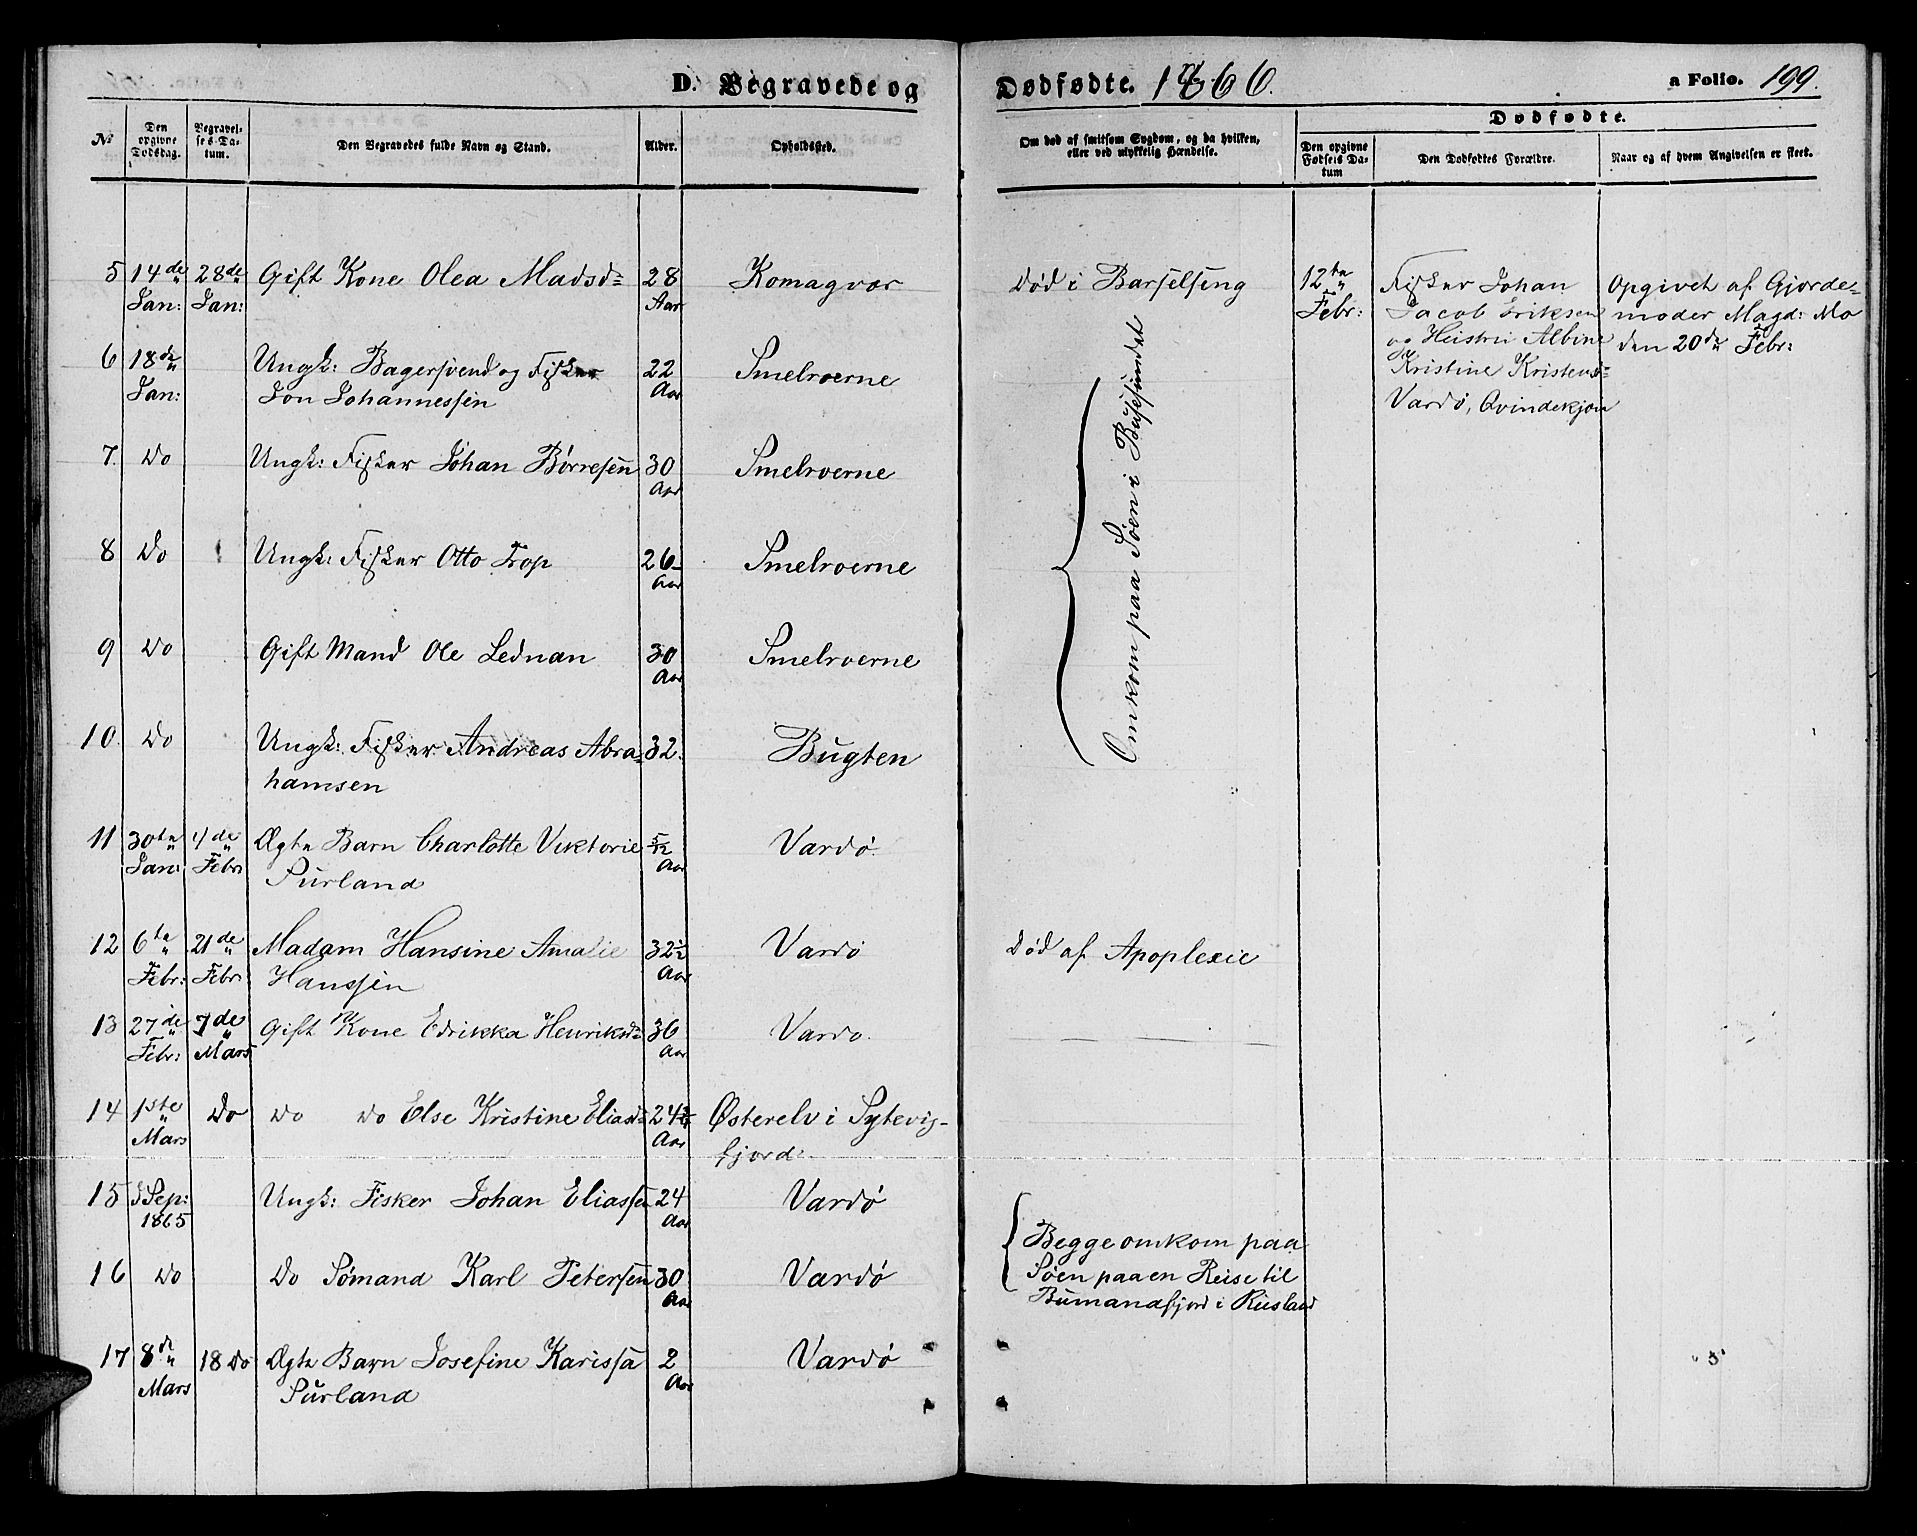 D. Begravede og Dødfødte. 1866. a Folio. 199.
No
Den opgivne Dødsdag.
Begravelses-Datum.
Den Begravedes fulde Navn og Stand.
Alder.
Opholdssted.
Om død af smitsom Sygdom, og da hvilken,
eller ved ulykkelig Hændelse.
Dødfødte.
Den opgivne Fødsels Datum
Den Dødfødtes Forældre.
Naar og af hvem Angivelsen er skeet.
5 14de Jan: 28de Jan: Gift Kone Olea Madsd= 28 Aar Komagvær Død i Barselseng
6 18de Jan: Ungk: Bagersvend og Fisker 22 Aar Smelroerne
Jon Johannessen
7. Do Ungk: Fisker Johan Børresen 30 Aar Smelroerne
8 Do Ungk: Fisker Otto Trop 26 Aar Smelroerne
9 Do Gift Mand Ole Lednan 30 Aar Smelroerne
10. Do Ungk: Fisker Andreas Abra= 32. Bugten
hamsen
Omkom paa Søen i Bussesundet
11 30te Jan: 4de Febr Ægte Barn Charlotte Viktorie 5/12 Aar Vardø.
Purland
12 6te Febr: 21de Febr: Madam Hansine Amalie 32½ Aar Vardø Død af Apoplexie
Hanssen
13 27de Febr: 7de Mars Gift Kone Edrikka Henriksd= 36 Aar Vardø.
14 1ste Mars Do Do Do Else Kristine Eliasd= 24 Aar Østerelv i Syltevig-
fjord.
15 Sep: 1865 Ungk: Fisker Johan Eliassen 24 Aar Vardø
16 Do Do Sømand Karl Petersen 30 Aar Vardø
Begge omkom paa
Søen paa en Reise til
Bumandsfjord i Rusland
17 8de Mars 18 Do Ægte Barn Josefine Karissa 2 Aar Vardø
Purland
12te Febr:
Fisker Johan
Jacob Eriksen
og Hustru Albine
Kristine Kristensd=
Vardø, Qvindekjøn
Opgivet af Gjorde=
moder Magd: Mo
den 20de Febr: